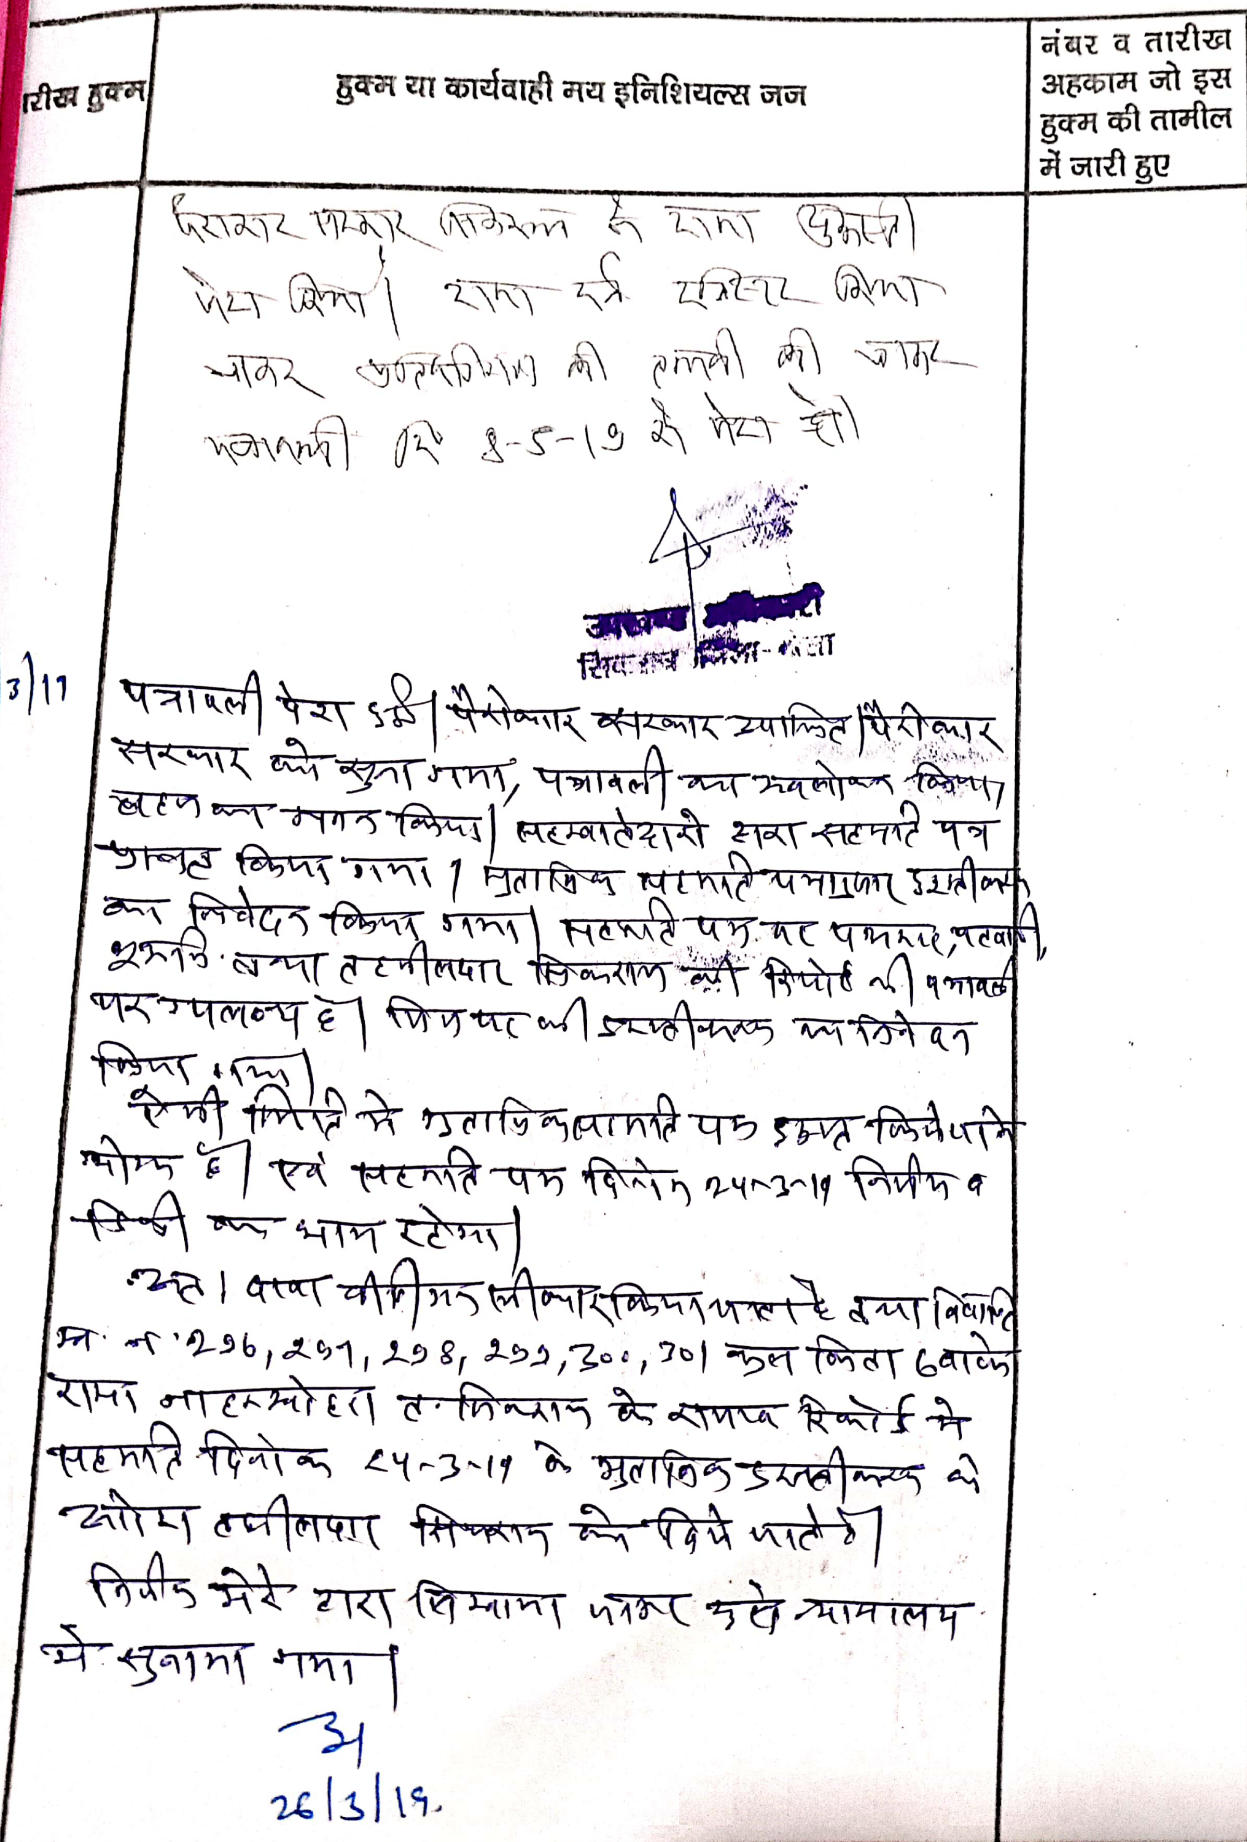 रीख हुक्म
हुक्म या कार्यवाही मय इनिशियल्स जज
नंबर व तारीख
अहकाम जो इस
हुक्म की तामील
में जारी हुए
पैरोकार सरकार सिकराय ने दावा
पेश किया। दावा दर्ज रजिस्टर किया
जाकर की तलबी की जाकर
पत्रावली दि 8-5-19 को पेश हो।
उपखण्ड अधिकारी
सिकराय जिला-दौसा
3/19
पत्रावली पेश हुई। पैरोकार सरकार उपस्थित। पैरोकार
सरकार को सुना गया, पत्रावली का अवलोकन किया,
बहस का मनन किया। सहखातेदारो द्वारा सहमति पत्र
प्रस्तुत किया गया। मुताबिक सहमति पत्रानुसार इस्तीकरार
का निवेदन किया गया। सहमति पत्र पर पक्षकार, पटवारी,
भू.अ.नि. तथा तहसीलदार सिकराय की रिपोर्ट भी पत्रावली
पर उपलब्ध है। जिस पर भी का निवेदन
किया गया।
ऐसी स्थिति मे मुताबिक सहमति पत्र किये जाने
योग्य है। एवं सहमति पत्र दिनांक 24-3-19 निर्णय व
डिक्री का भाग रहेगा।
अतः वाद स्वीकार किया जाता है तथा विवादित
ख. न. 296, 297, 298, 299, 300, 301 कुल किता 6 वाके
ग्राम नाहरखोहरा त. सिकराय के राजस्व रिकोर्ड मे
सहमति दिनांक 24-3-19 के मुताबिक के
आदेश तहसीलदार सिकराय को दिये जाते है।
निर्णय मेरे द्वारा लिखाया जाकर खुले न्यायालय
मे सुनाया गया।
26/3/19.